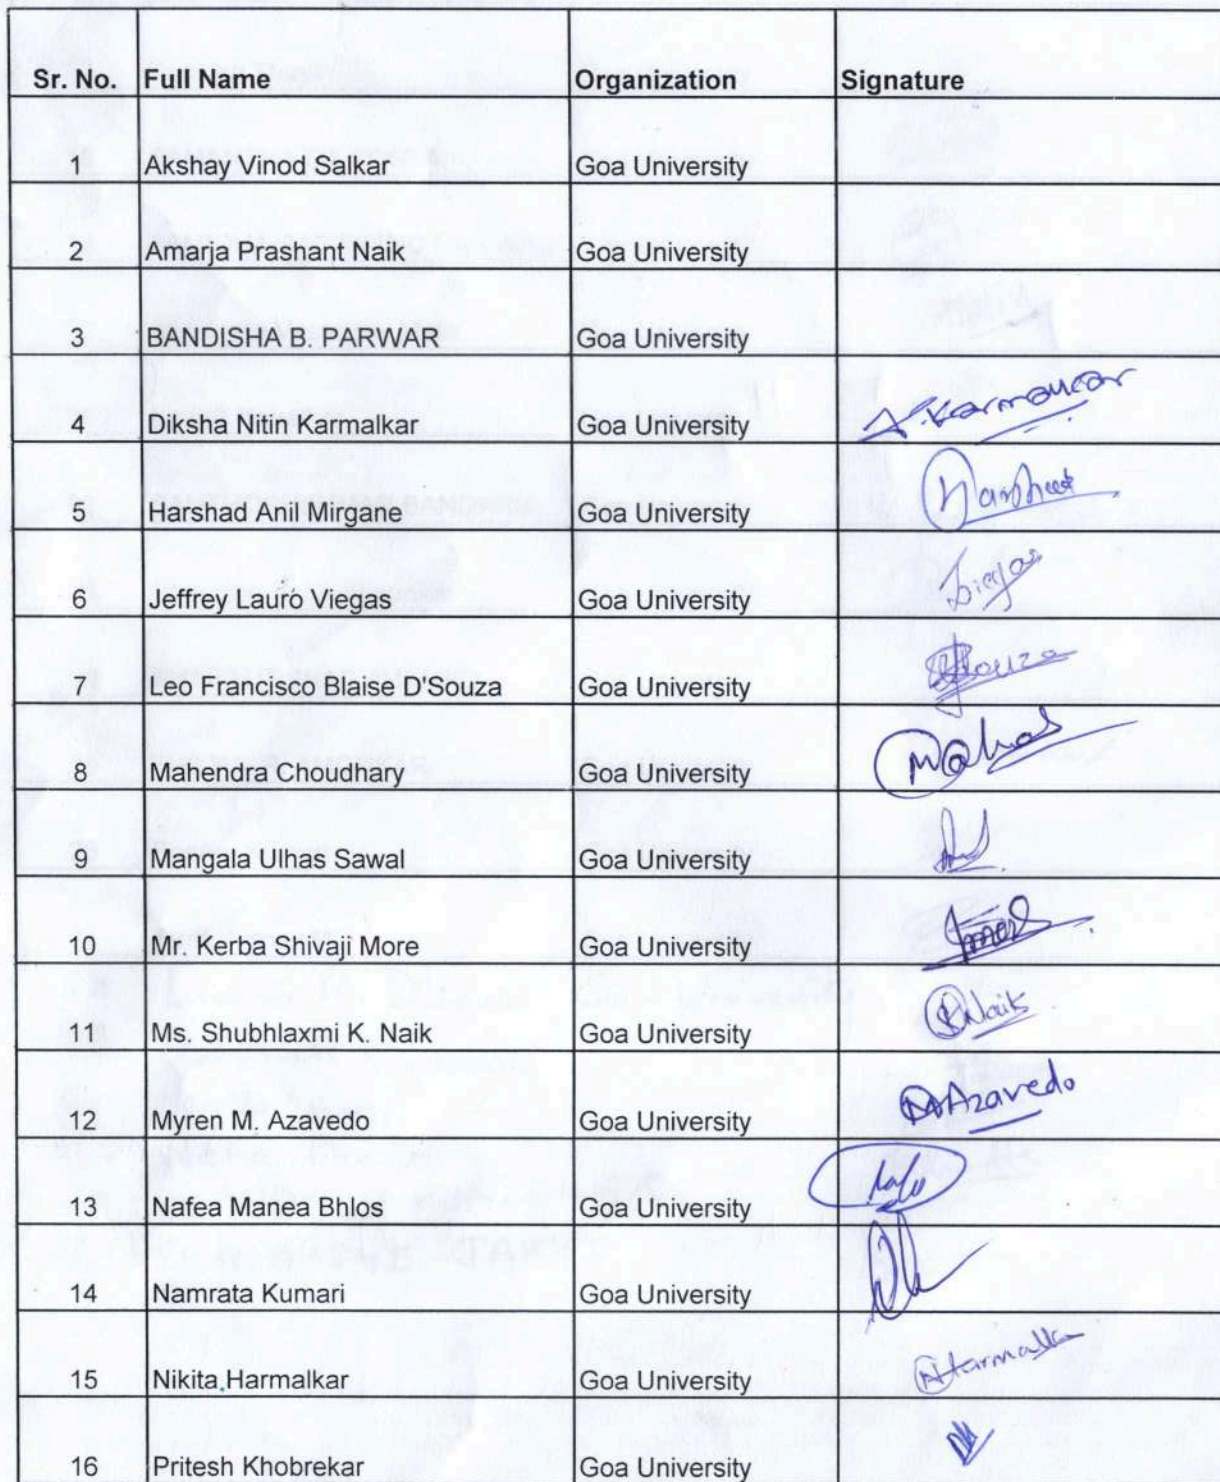 Sr. No. Full Name Organization Signature
1 Akshay Vinod Salkar Goa University
2 Amarja Prashant Naik Goa University
3 BANDISHA B. PARWAR Goa University
4 Diksha Nitin Karmalkar Goa University
5 Harshad Anil Mirgane Goa University
6 Jeffrey Lauro Viegas Goa University Viegas
7 Leo Francisco Blaise D'Souza Goa University
8 Mahendra Choudhary Goa University
9 Mangala Ulhas Sawal Goa University
10 Mr. Kerba Shivaji More Goa University
11 Ms. Shubhlaxmi K. Naik Goa University SNaik
12 Myren M. Azavedo Goa University MAzavedo
13 Nafea Manea Bhlos Goa University
14 Namrata Kumari Goa University
15 Nikita Harmalkar Goa University
16 Pritesh Khobrekar Goa University